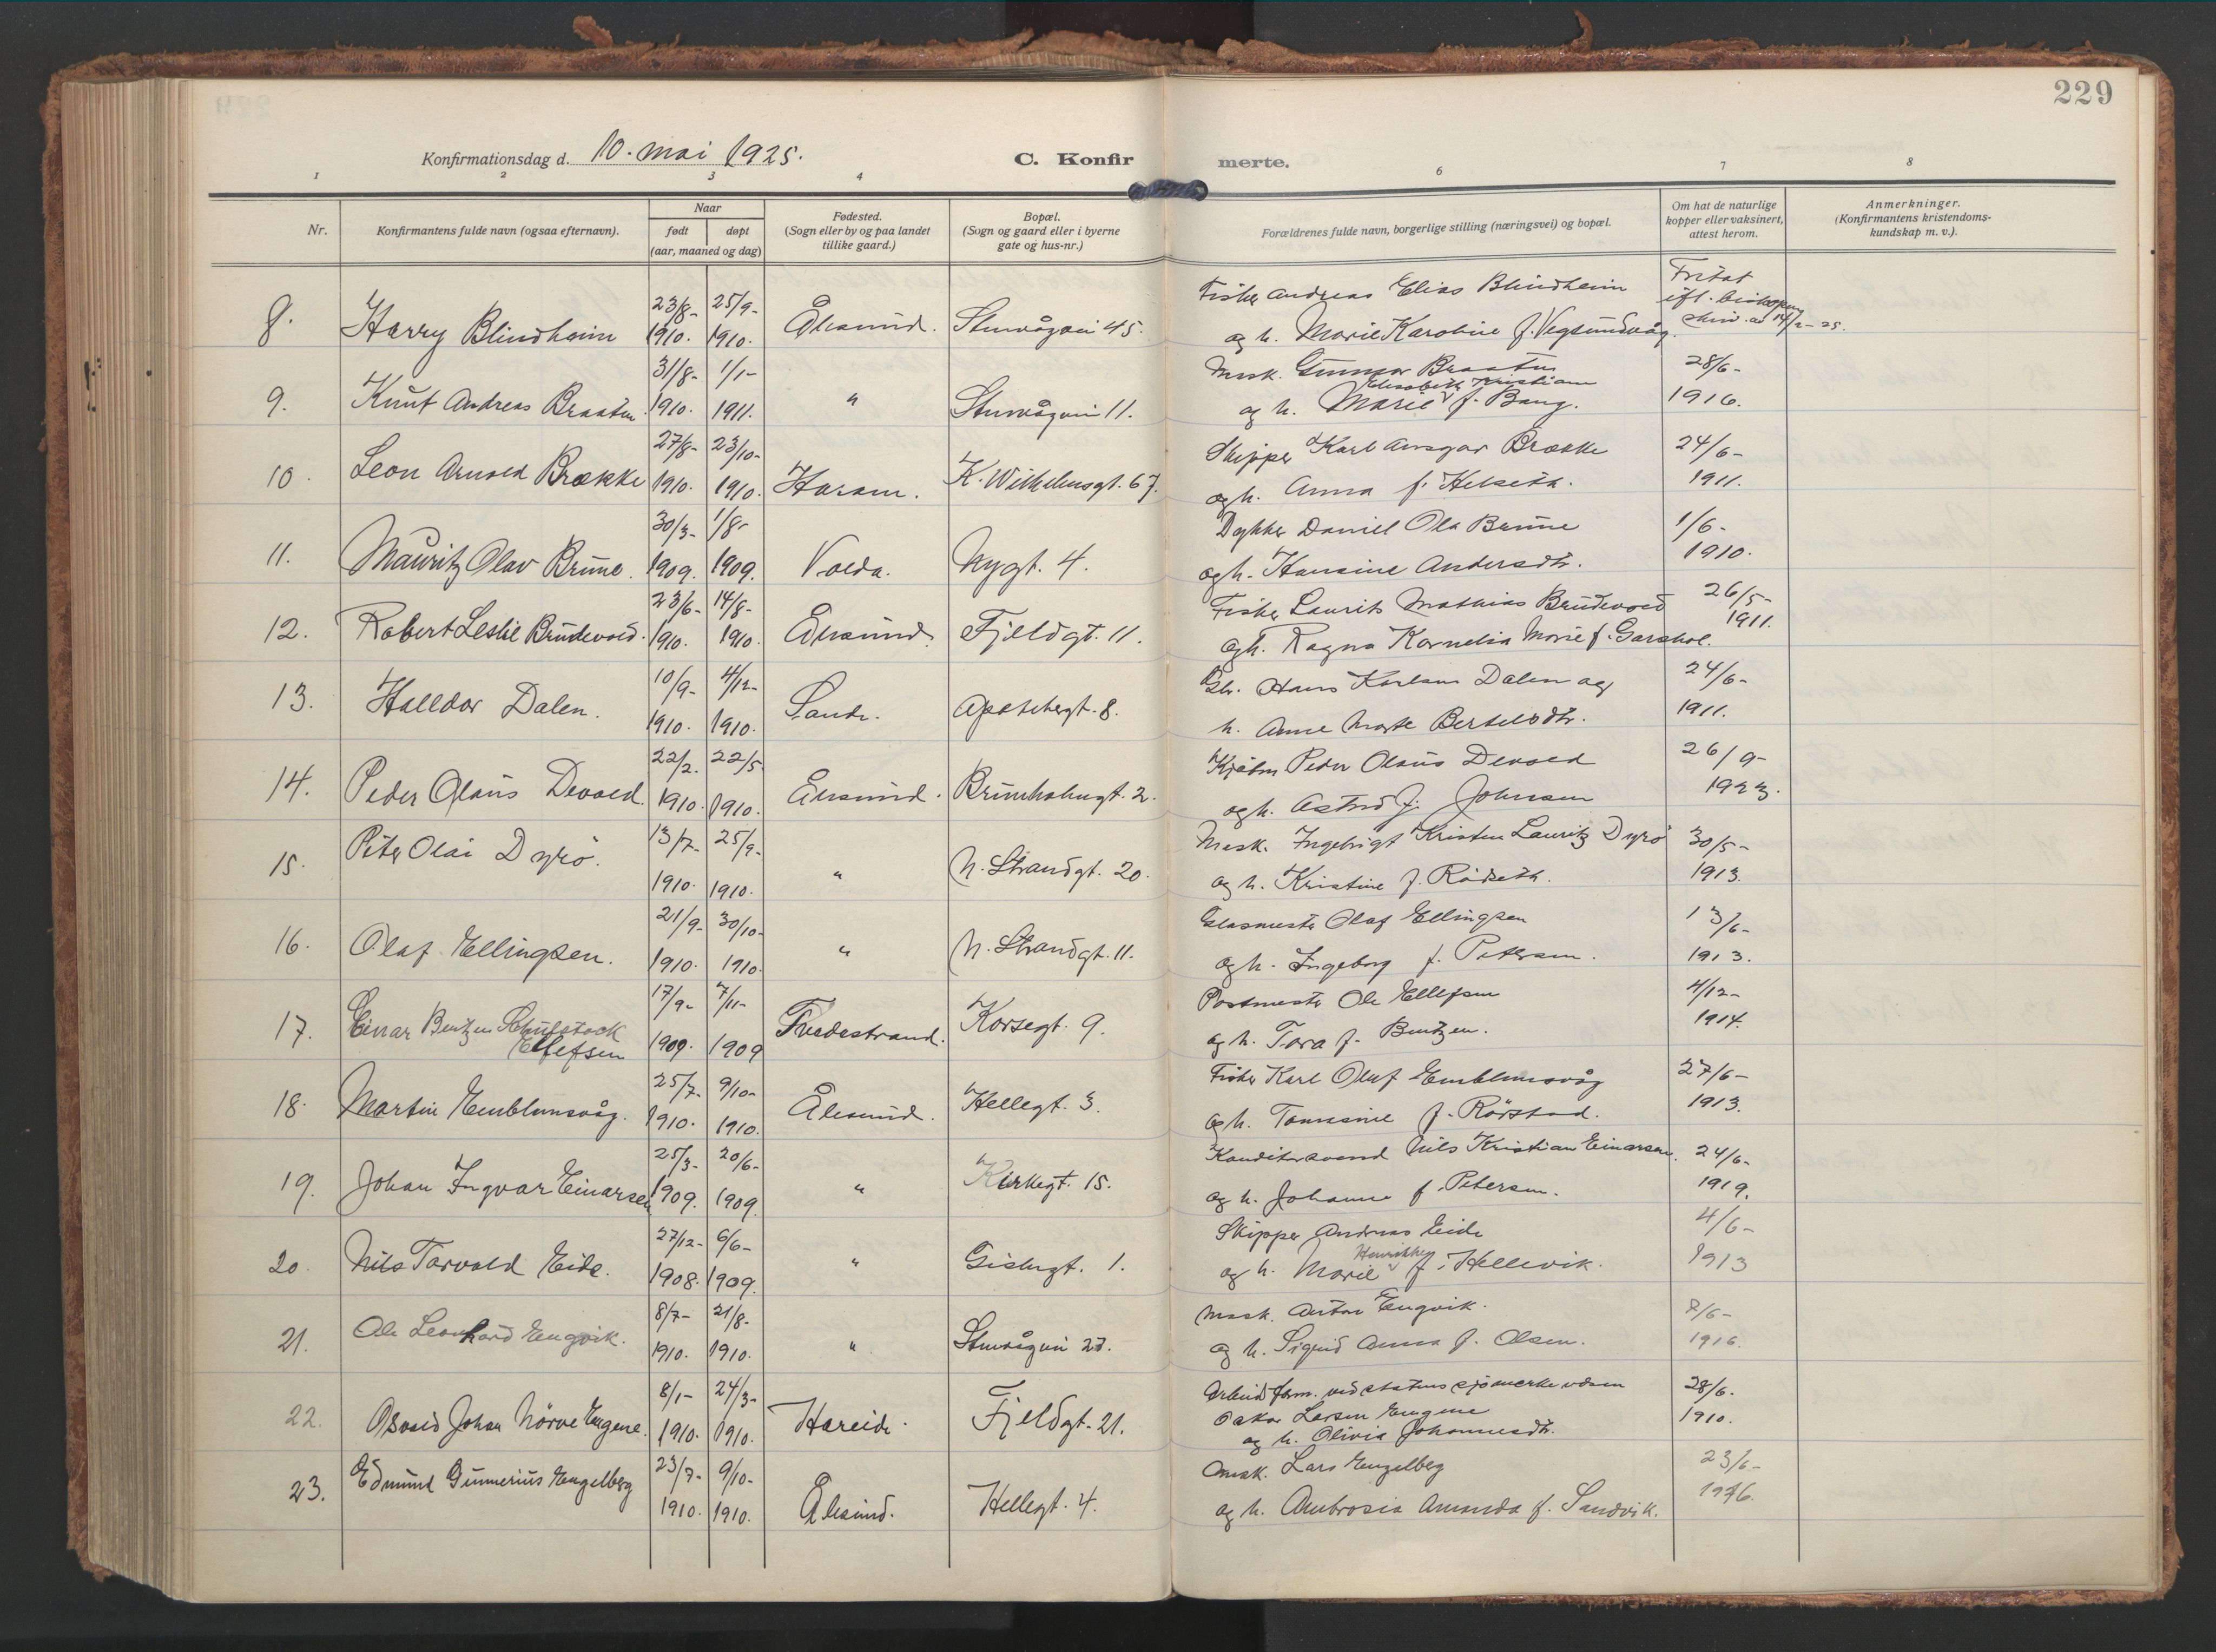 229
Konfirmationsdag d. 10. mai 1925.
C. Konfir merte.
1 2 3 4 6 7 8
Nr.
Konfirmantens fulde navn (ogsaa efternavn).
Naar
født døpt
(aar, maaned og dag)
Fødested.
(Sogn eller by og paa landet
tillike gaard.)
Bopæl.
(Sogn og gaard eller i byerne
gate og hus-nr.)
Forældrenes fulde navn, borgerlige stilling (næringsvei) og bopæl.
Om hat de naturlige
kopper eller vaksinert,
attest herom.
Anmerkninger.
(Konfirmantens kristendoms-
kundskap m. v.).
8. Harry Blindheim 23/8- 1910. 25/9- 1910. Ålesund. Storvågveien 45.
Fisker Andreas Elias Blindheim
og h. Marie Karoline f. Vegsundvåg.
Fritat
ifl. biskopens
skriv. av 14/2-25.
9. Knut Andreas Braaten 31/8- 1910. 1/1- 1911. " Storvågveien 11.
Mask. Gunnar Braaten
og h. Marie Elisabeth Kristiane f. Bang.
28/6-
1916.
10. Leon Arnold Brække 27/8- 1910. 23/10- 1910. Haram. K. Wilhelmsgt. 67.
Skipper Karl Ansgar Brække
og h. Anna f. Helseth.
24/6-
1911.
11. Mauritz Olav Brune. 30/3- 1909. 1/8- 1909. Volda. Nygt. 4.
Dykker Daniel Ola Brune
og h. Hansine Andersdtr.
1/6-
1910.
12. Robert Leslie Brudevold. 23/6- 1910. 14/8- 1910. Ålesund. Fjeldgt. 11.
Fisker Laurits Mathias Brudevold
og h. Ragna Kornelia Marie f. Garshol.
26/5-
1911.
13. Halldor Dalen. 10/9- 1910. 4/12- 1910. Sande. Apotekergt. 8.
Gbr. Hans Karlsen Dalen og
h. Anne Marte Bertelsdtr.
24/6-
1911.
14. Peder Olaus Devold. 22/2. 1910. 22/5. 1910. Ålesund. Brunholmgt. 2.
Kjøbm. Peder Olaus Devold
og h. Astrid f. Johnsen
26/9-
1923.
15. Peter Olai Dyrö. 13/7- 1910. 25/9- 1910. " N. Strandgt. 20.
Mask. Ingebrigt Kristen Lauritz Dyrö
og h. Kristine f. Rödseth.
30/5-
1913.
16. Olaf Ellingsen. 21/9- 1910. 30/10- 1910. " N. Strandgt. 11.
Glasmester Olaf Ellingsen
og h. Ingeborg f. Petersen.
13/6-
1913.
17. Einar Bentzen Ellefsen 17/9- 1909. 7/11- 1909 Tvedestrand. Korsegt. 9.
Postmester Ole Ellefsen
og h. Tora f. Bentzen.
4/12-
1914.
18. Martin Emblemsvåg. 25/7. 1910. 9/10- 1910. Ålesund. Hellegt. 3.
Fisker Karl Oluf Emblemsvåg
og h. Tomasine f. Rörstad.
27/6-
1913.
19. Johan Ingvar Einarsen 25/3- 1909. 20/6- 1909. " Kirkegt. 15.
Konditorsvend Nils Kristian Einarsen.
og h. Johanne f. Petersen.
24/6-
1919.
20. Nils Torvald Eide. 27/12- 1908. 6/6- 1909. " Giskegt. 1.
Skipper Andreas Eide
og h. Marie Henrikke f. Hellevik.
4/6-
1913
21. Ole Leonhard Engvik. 8/7- 1910. 21/8- 1910. " Storvågveien 27.
Mask. Anton Engvik.
og h. Sigrid Anna f. Olsen.
7/6-
1916.
22. Osvald Johan Nörve Engene. 8/1- 1910. 24/3- 1910. Hareide. Fjeldgt. 21.
Arbeidsform. ved statens sjömerkevæsen
Oskar Larsen Engene
og h. Olivia Johannesdtr.
28/6.
1910.
23. Edmund Gunnerius Engelberg 23/7- 1910. 9/10- 1910. Ålesund. Hellegt. 4.
Mask. Lars Engelberg
og h. Ambrosia Amanda f. Sandvik.
23/6-
1916.